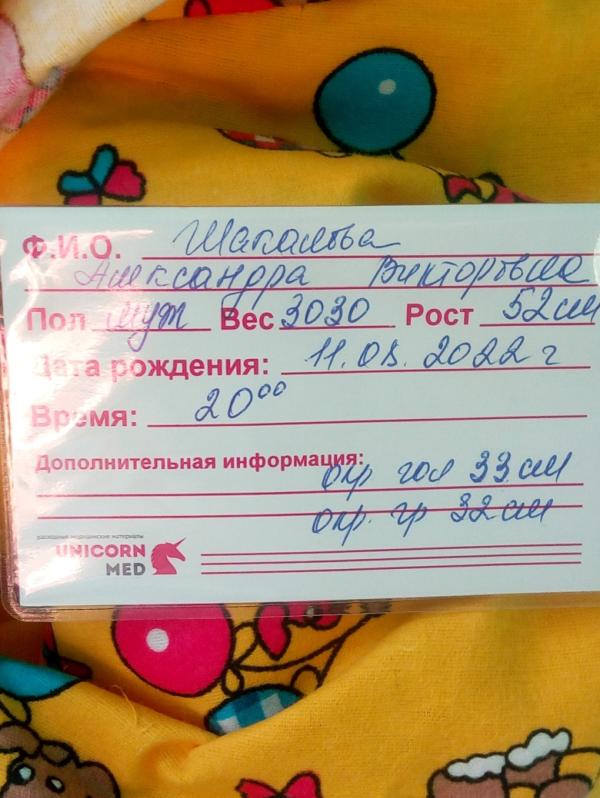 Ф.И.О. Шакалова
Александра Викторовна
Пол муж Вес 3030 Рост 52 см
Дата рождения: 11.08.2022 г
Время: 20⁰⁰
Дополнительная информация:
окр гол 33 см
окр. гр 32 см
расходные медицинские материалы
UNICORN
MED